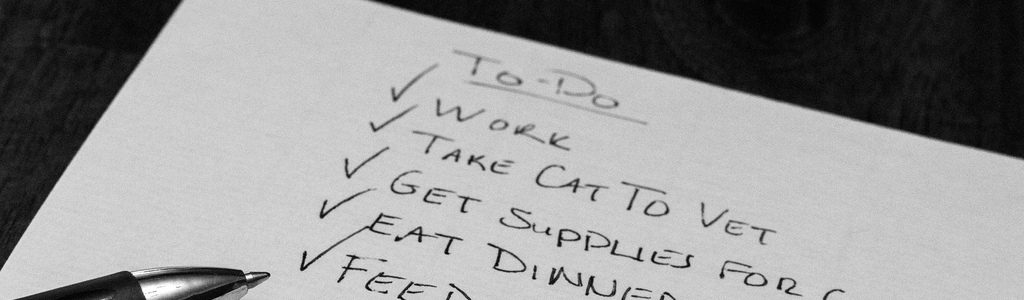 To-Do
✓ Work
✓ Take Cat To Vet
✓ Get Supplies For
✓ Eat Dinner
✓ Feed